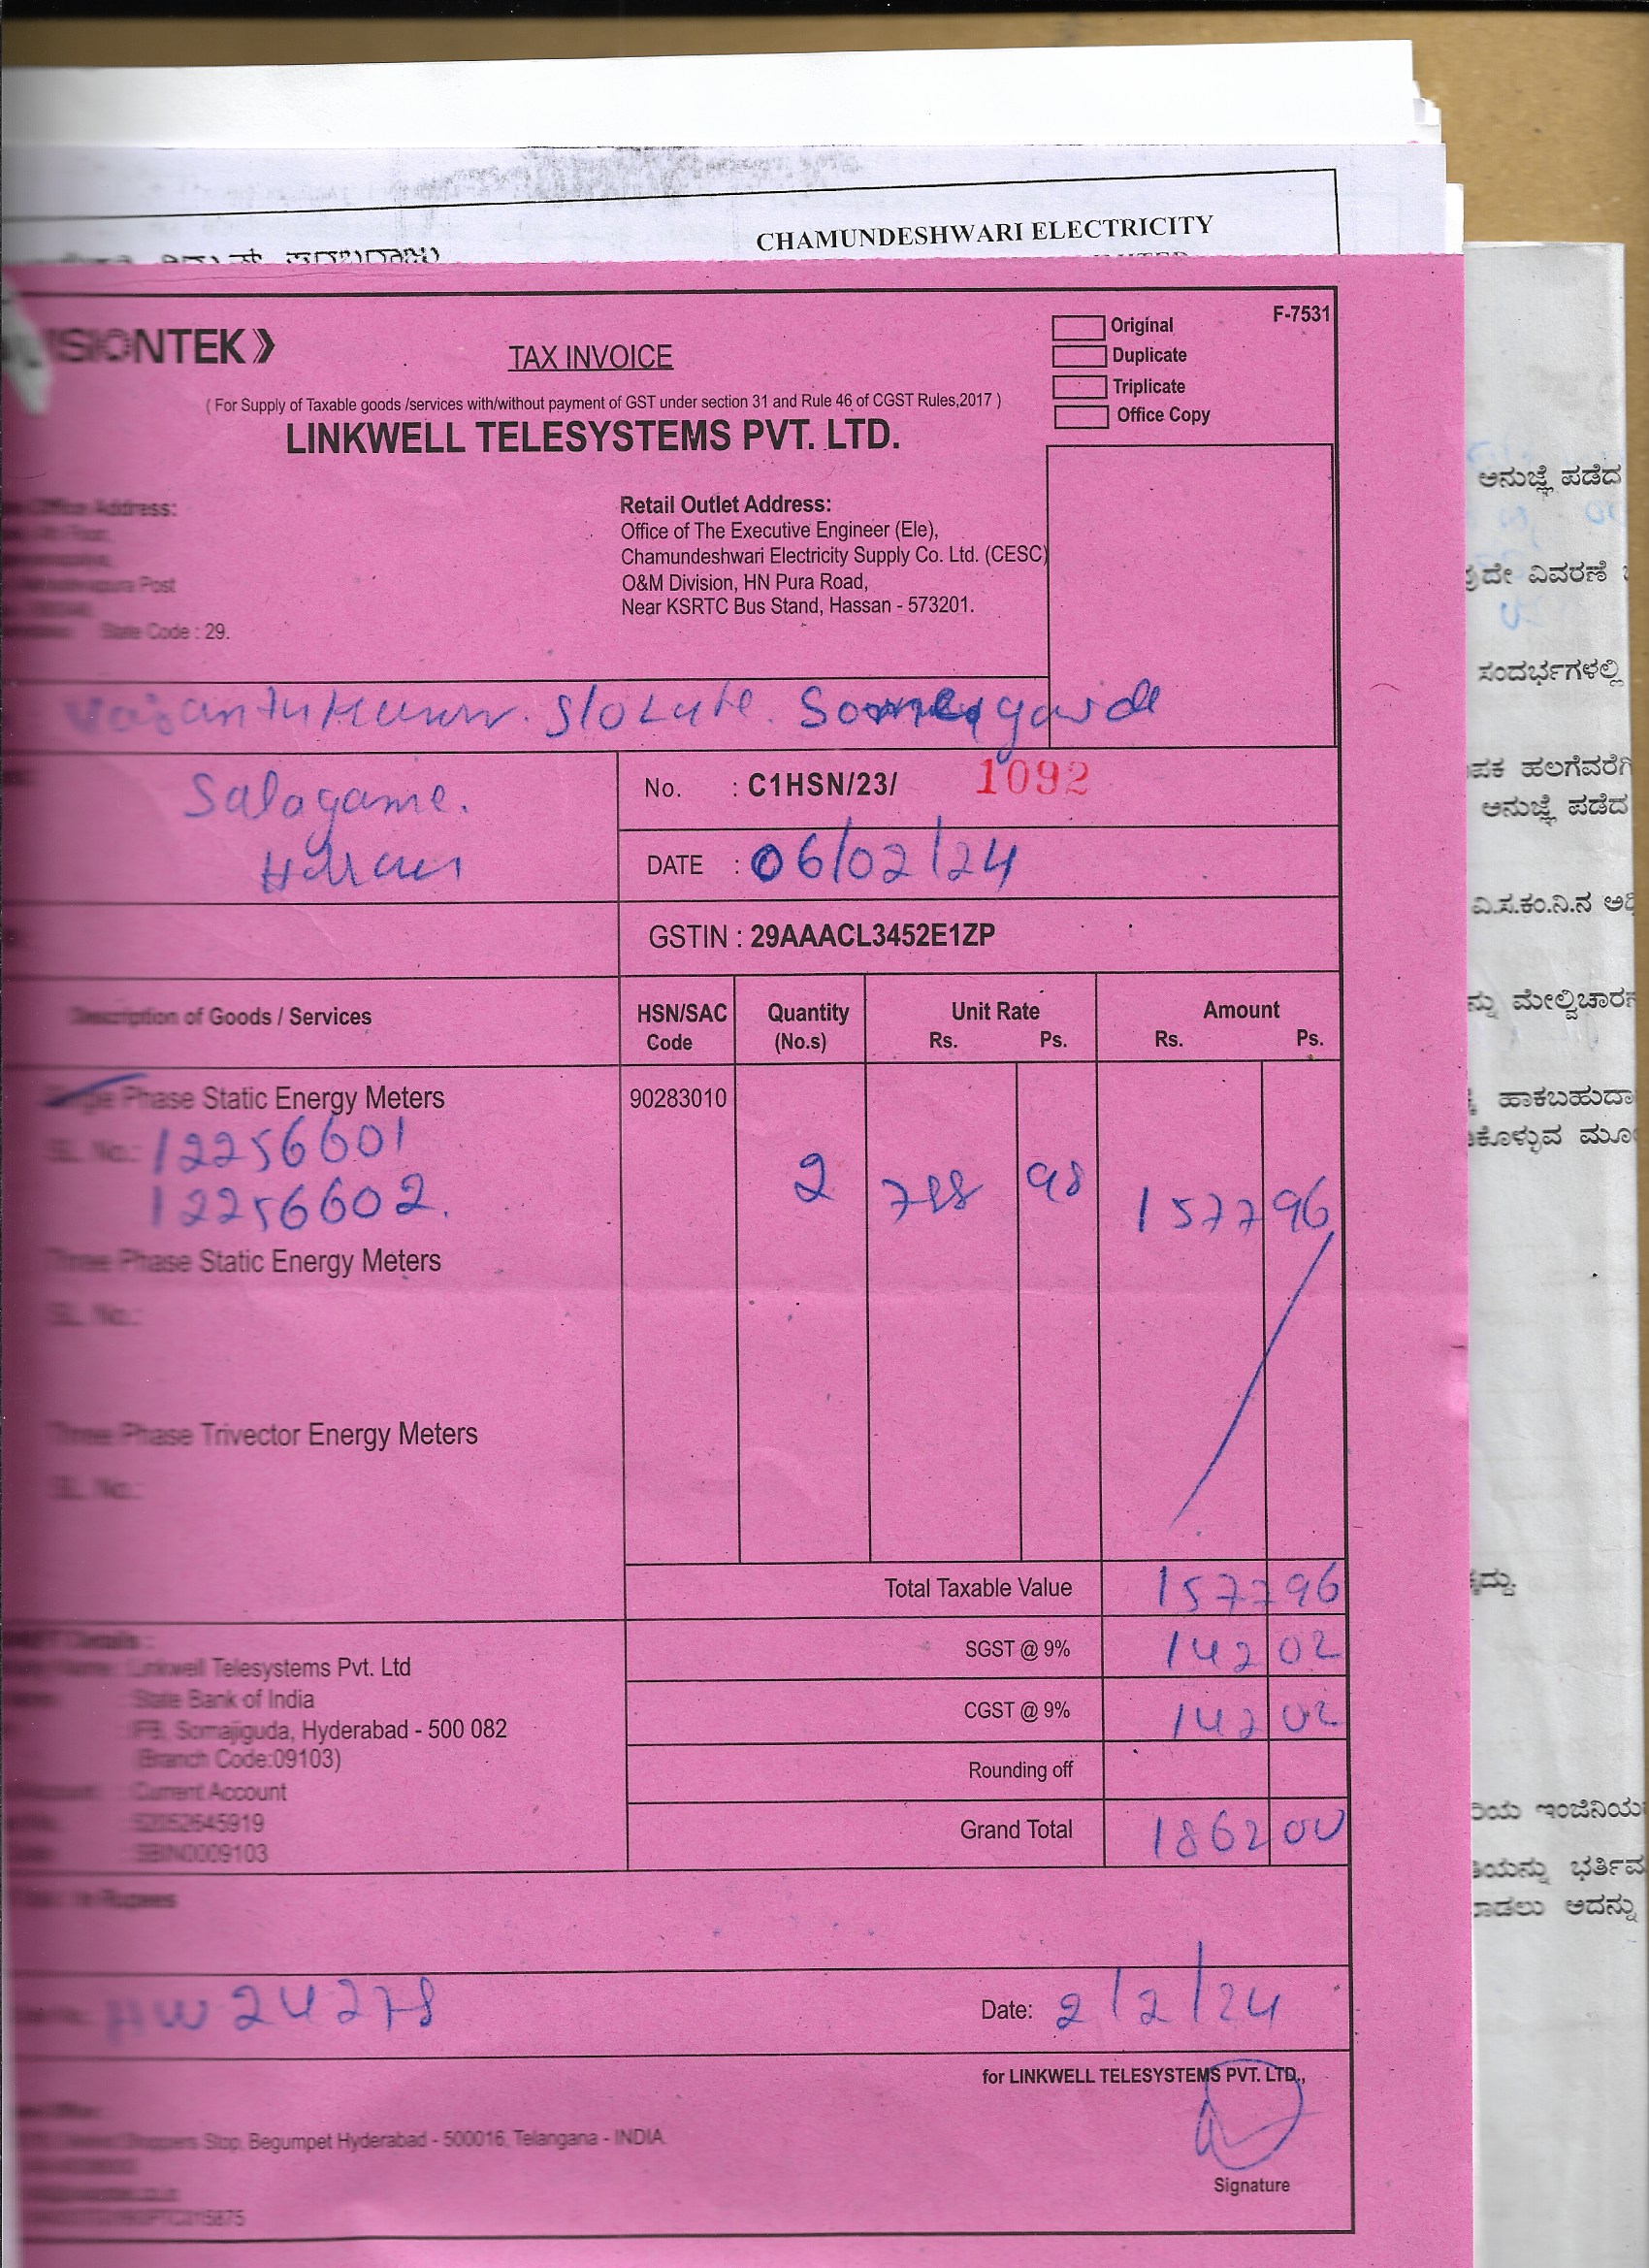 CHAMUNDESHWARI ELECTRICITY
VISIONTEK
TAX INVOICE
Original
Duplicate
Triplicate
Office Copy
F-7531
( For Supply of Taxable goods /services with/without payment of GST under section 31 and Rule 46 of CGST Rules,2017 )
LINKWELL TELESYSTEMS PVT. LTD.
Office Address:
Post
State Code : 29.
Retail Outlet Address:
Office of The Executive Engineer (Ele),
Chamundeshwari Electricity Supply Co. Ltd. (CESC)
O&M Division, HN Pura Road,
Near KSRTC Bus Stand, Hassan - 573201.
S/O Late.
Salagame.
No. : C1HSN/23/ 1092
DATE : 06/02/24
GSTIN : 29AAACL3452E1ZP
Description of Goods / Services
HSN/SAC Code
Quantity (No.s)
Unit Rate Rs. Ps.
Amount Rs. Ps.
Phase Static Energy Meters 90283010
SL. No.: 12256601
12256602.
2 788 98 1577 96
Three Phase Static Energy Meters
SL. No.:
Three Phase Trivector Energy Meters
SL. No.:
Total Taxable Value 1577 96
SGST @ 9% 142 02
CGST @ 9% 142 02
Rounding off
Grand Total 1862 00
Details :
: Linkwell Telesystems Pvt. Ltd
: State Bank of India
IFB, Somajiguda, Hyderabad - 500 082
(Branch Code:09103)
: Current Account
: SBIN0009103
in Rupees
HW 24278
Date: 2/2/24
for LINKWELL TELESYSTEMS PVT. LTD.,
Stop, Begumpet Hyderabad - 500016, Telangana - INDIA.
Signature
ಅನುಜ್ಞೆ ಪಡೆದ
ವಿವರಣೆ
ಸಂದರ್ಭಗಳಲ್ಲಿ
ಅನುಜ್ಞೆ ಪಡೆದ
ವಿ.ಸ.ಕಂ.ನಿ.ನ